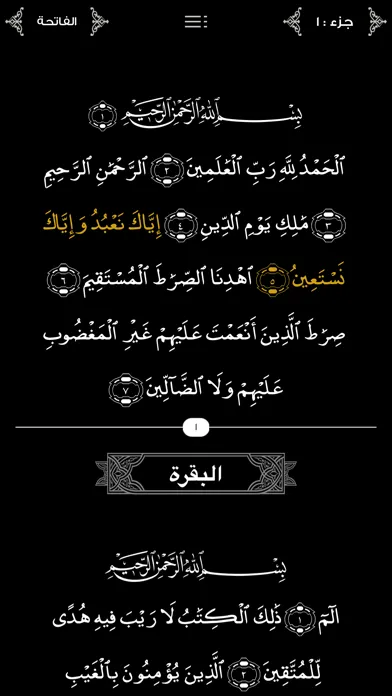 جزء : ١
الفاتحة
بِسْمِ ٱللَّهِ ٱلرَّحْمَٰنِ ٱلرَّحِيمِ ١
ٱلْحَمْدُ لِلَّهِ رَبِّ ٱلْعَٰلَمِينَ ٢ ٱلرَّحْمَٰنِ ٱلرَّحِيمِ
٣ مَٰلِكِ يَوْمِ ٱلدِّينِ ٤ إِيَّاكَ نَعْبُدُ وَإِيَّاكَ
نَسْتَعِينُ ٥ ٱهْدِنَا ٱلصِّرَٰطَ ٱلْمُسْتَقِيمَ ٦
صِرَٰطَ ٱلَّذِينَ أَنْعَمْتَ عَلَيْهِمْ غَيْرِ ٱلْمَغْضُوبِ
عَلَيْهِمْ وَلَا ٱلضَّآلِّينَ ٧
١
البقرة
بِسْمِ ٱللَّهِ ٱلرَّحْمَٰنِ ٱلرَّحِيمِ
الٓمٓ ١ ذَٰلِكَ ٱلْكِتَٰبُ لَا رَيْبَ فِيهِ هُدًى
لِّلْمُتَّقِينَ ٢ ٱلَّذِينَ يُؤْمِنُونَ بِٱلْغَيْبِ